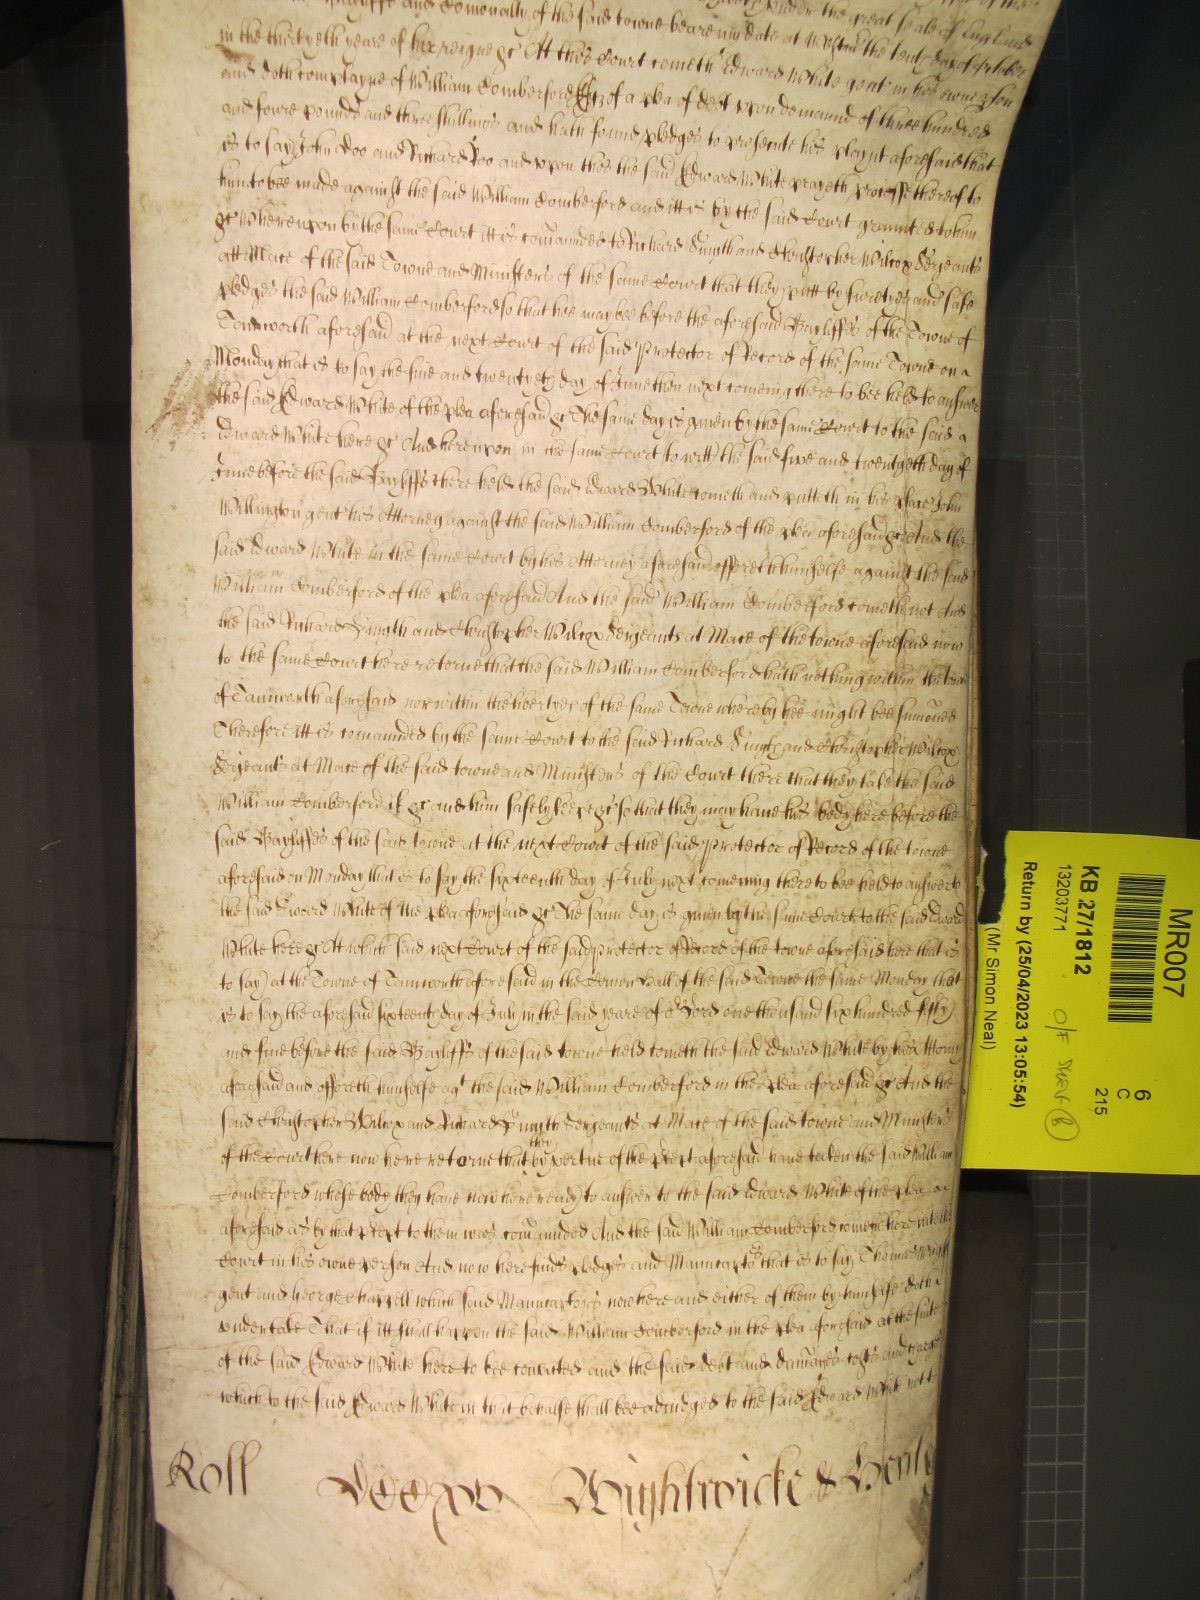 Bayliffs and Comonalty of the said towne beareing date at Westmr the tenth day of October
in the thirtyeth yeare of her reigne &c Att this Court cometh Edward White gent in his owne pson
and doth complayne of William Comberford Esqr of a plea of debt vpon demaund of three hundred
and fowre pounds and three shillings and hath found pledges to prosecute his playnt aforesaid that
is to say John Doo and Richard Roo and vpon this the said Edward White prayeth processe thereof to
him to bee made against the said William Comberford and itt is by the said Court graunted to him
&c Wherevpon by the same Court itt is comaunded to Richard Smyth and Christopher Wilcox Sergeants
att Mace of the said Towne and Ministers of the same Court that they putt by suretyes and safe
pledges the said William Comberford so that hee may bee before the aforesaid Bayliffes of the Towne of
Tamworth aforesaid at the next Court of the said Protector of Record of the same Towne on a
Monday that is to say the five and twentyeth day of June then next comeing there to bee held to answer
the said Edward White of the plea aforesaid &c The same day is given by the same Court to the said a
Edward White here &c And herevpon in the same Court (to witt) the said five and twentyeth day of
June before the said Bayliffs there held the said Edward White cometh and putteth in his place John
Willington gent his Attorney against the said William Comberford of the plea aforesaid &c And the
said Edward White in the same Court by his Attorney aforesaid offereth himselfe against the said
William Comberford of the plea aforesaid And the said William Comberford cometh not And
the said Richard Smyth and Christopher Wilcox Sergeants at Mace of the towne aforesaid now
to the same Court here retorne that the said William Comberford hath nothing within the towne
of Tamworth aforesaid nor within the libertyes of the same Towne whereby hee might bee sumoned
Therefore itt is comaunded by the same Court to the said Richard Smyth and Christopher Wilcox
Sergeants at Mace of the said towne and Ministers of the Court there that they take the said
William Comberford if &c and him safely keepe &c so that they may have his body here before the
said Bayliffes of the said towne at the next Court of the said Protector of Record of the towne
aforesaid on Monday that is to say the sixteenth day of July next comeing there to bee held to answer to
the said Edward White of the plea aforesaid &c The same day is given by the same Court to the said Edward
White here &c At which said next Court of the said Protector of Record of the towne aforesaid here that is
to say) at the Towne of Tamworth aforesaid in the Comon Hall of the said Towne the same Monday that
is to say the aforesaid sixteenth day of July in the said yeare of or Lord one thousand six hundred fifty
and five before the said Bayliffs of the said towne held cometh the said Edward White by his Attorny
aforesaid and offereth himselfe agt the said William Comberford in the plea aforesaid &c And the
said Christopher Wilcox and Richard Smyth Sergeants at Mace of the said towne and Ministers
of the Court here now here retorne that they by vertue of the prcept aforesaid have taken the said William
Comberford whose body they have now here ready to answer to the said Edward White of the plea a
aforesaid as by that prcept to them was comaunded And the said William Comberford cometh here into the
Court in his owne person And now here finds pledges and Manucaptors that is to say Thomas Wright
gent and George Chappell which said Manucaptors now here and either of them by himselfe doth a
vndertake That if itt shall happen the said William Comberford in the plea aforesaid at the suite
of the said Edward White here to bee convicted and the said debt and damages costs and charges
which to the said Edward White in that behalfe shall bee adiudged to the said Edward White not
Roll Wightwicke &
MR007
6
C
215
KB 27/1812
13203771
O/F
Return by (25/04/2023 13:05:54)
(Mr Simon Neal)